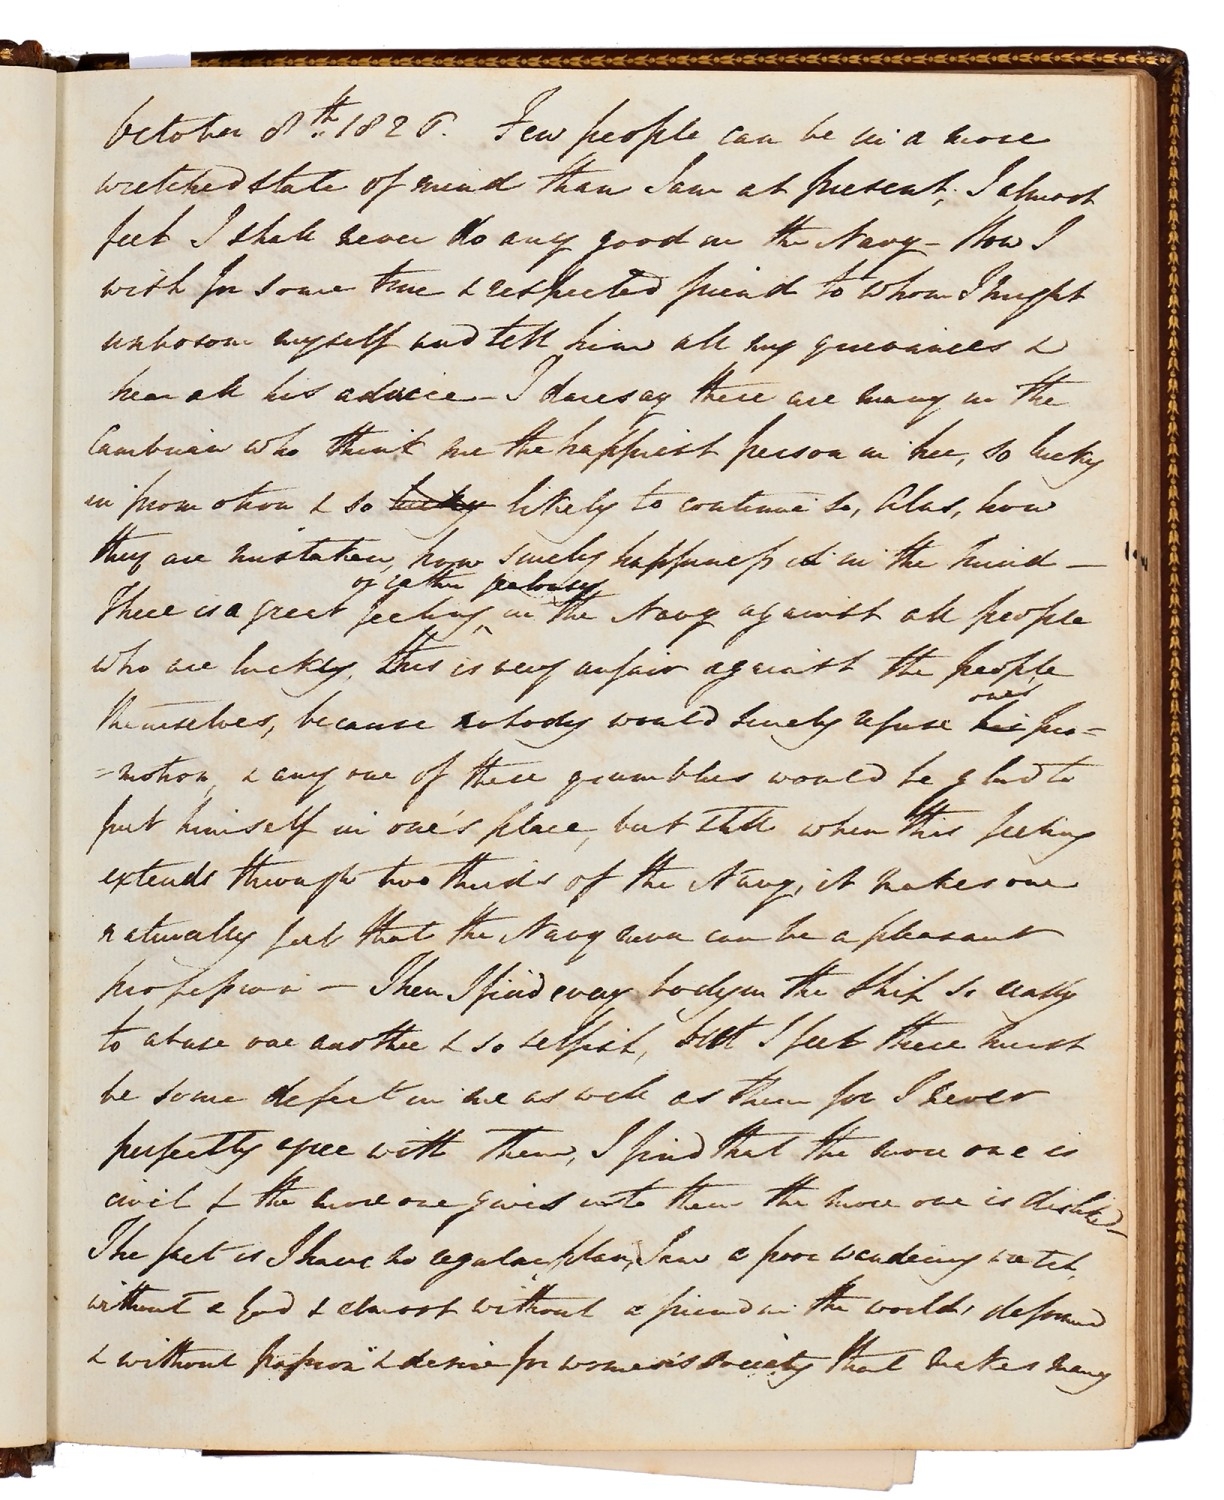 October 8th. 1826. Few people can be in a more
wretched state of mind than I am at present, I almost
feel I shall never do any good in the Navy - How I
wish for some true & respected friend to whom I might
unbosom myself and tell him all my grievances &
hear all his advice - I daresay there are many in the
Cambrian who think me the happiest person in her, so lucky
in promotion & so lucky likely to continue so, Alas, how
they are mistaken, how surely happiness is in the mind -
or rather jealousy
There is a great feeling, in the Navy against all people
who are lucky. this is very unfair against the people
one's
themselves, because nobody would surely refuse his pro=
=motion, & any one of these grumblers would be glad to
put himself in one's place, but still when this feeling
extends through two thirds of the Navy, it makes one
naturally feel that the Navy never can be a pleasant
profession - Then I find every body in the Ship so ready
to abuse one another & so selfish, but I feel there must
be some defect in me as well as them for I never
perfectly agree with them, I find that the more one is
civil & the more one gives in to them the more one is disliked -
The fact is I have no regular plan, I am a poor wandering wretch,
without a God & almost without a friend in the world, deformed
& without passion & desire for women's society that makes many